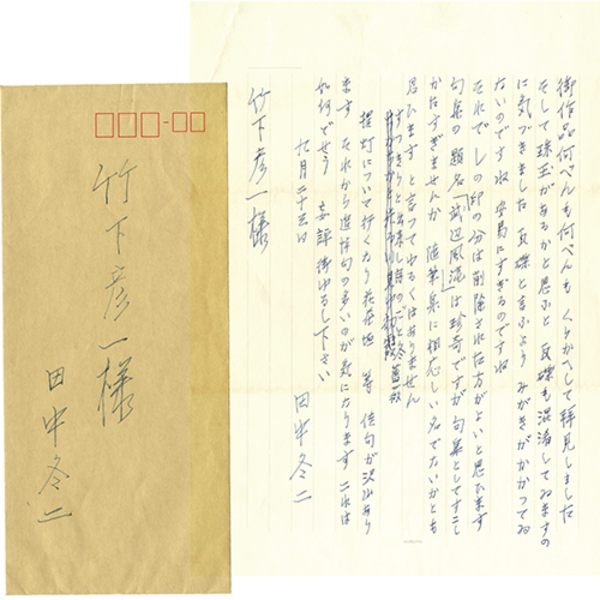 御作品何べんも何べんも くりかへして拝見しました
そして珠玉があるかと思ふと 瓦礫も混淆してゐますの
に気づきました 瓦礫と言ふより みがきがかかつてゐ
ないのですね 安易にすぎるのですね
それで レの印の分は削除された方がよいと思ひます
句集の題名「 」は珍奇ですが 句集としてすこし
かたすぎませんか 随筆集に相応しい名でないかとも
思ひます と言つてわるくはありません
提灯について行くなり 等 佳句が沢山あり
ます それから 句の多いのが気になります これは
如何でせう 妄評御ゆるし下さい
九月二十三日
田中冬二
竹下彦一様
竹下彦一様
田中冬二